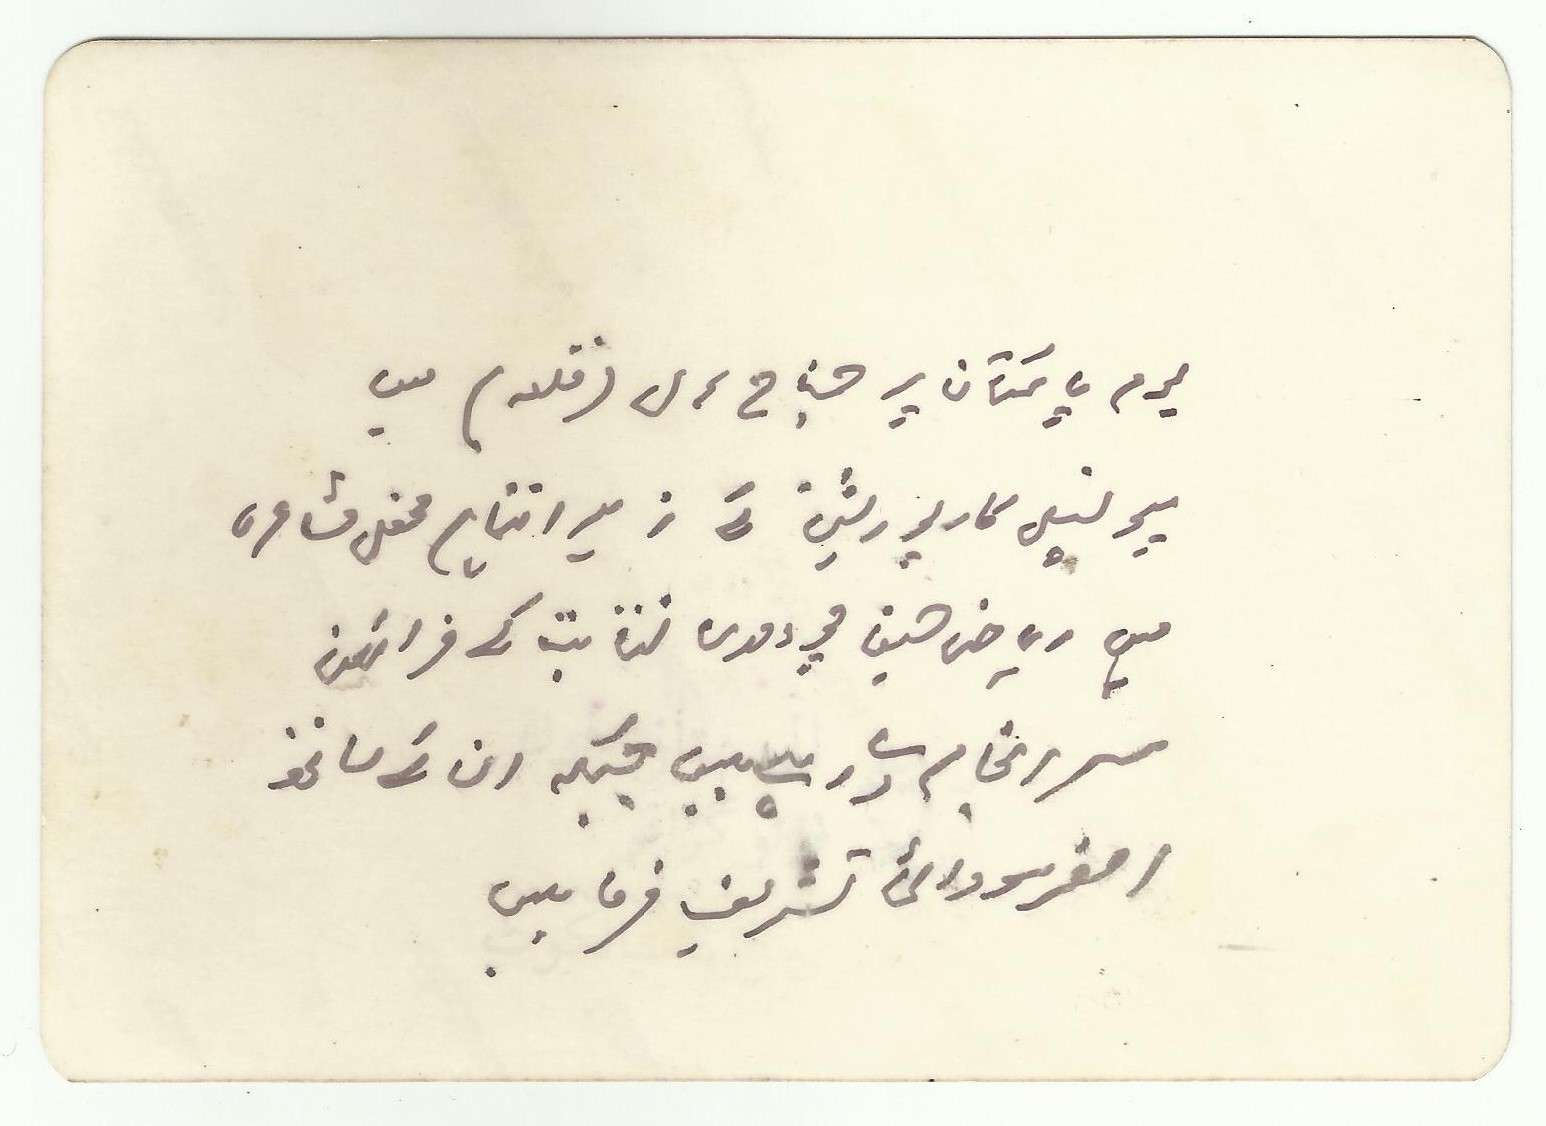 یوم پاکستان پر جناح ہال (قلعہ) میں
میونسپل کارپوریشن کے زیر اہتمام محفل مشاعرہ
میں ریاض حسین چوہدری نقابت کے فرائض
سرانجام دے رہے ہیں جبکہ ان کے ساتھ
اصغر سودائی تشریف فرما ہیں